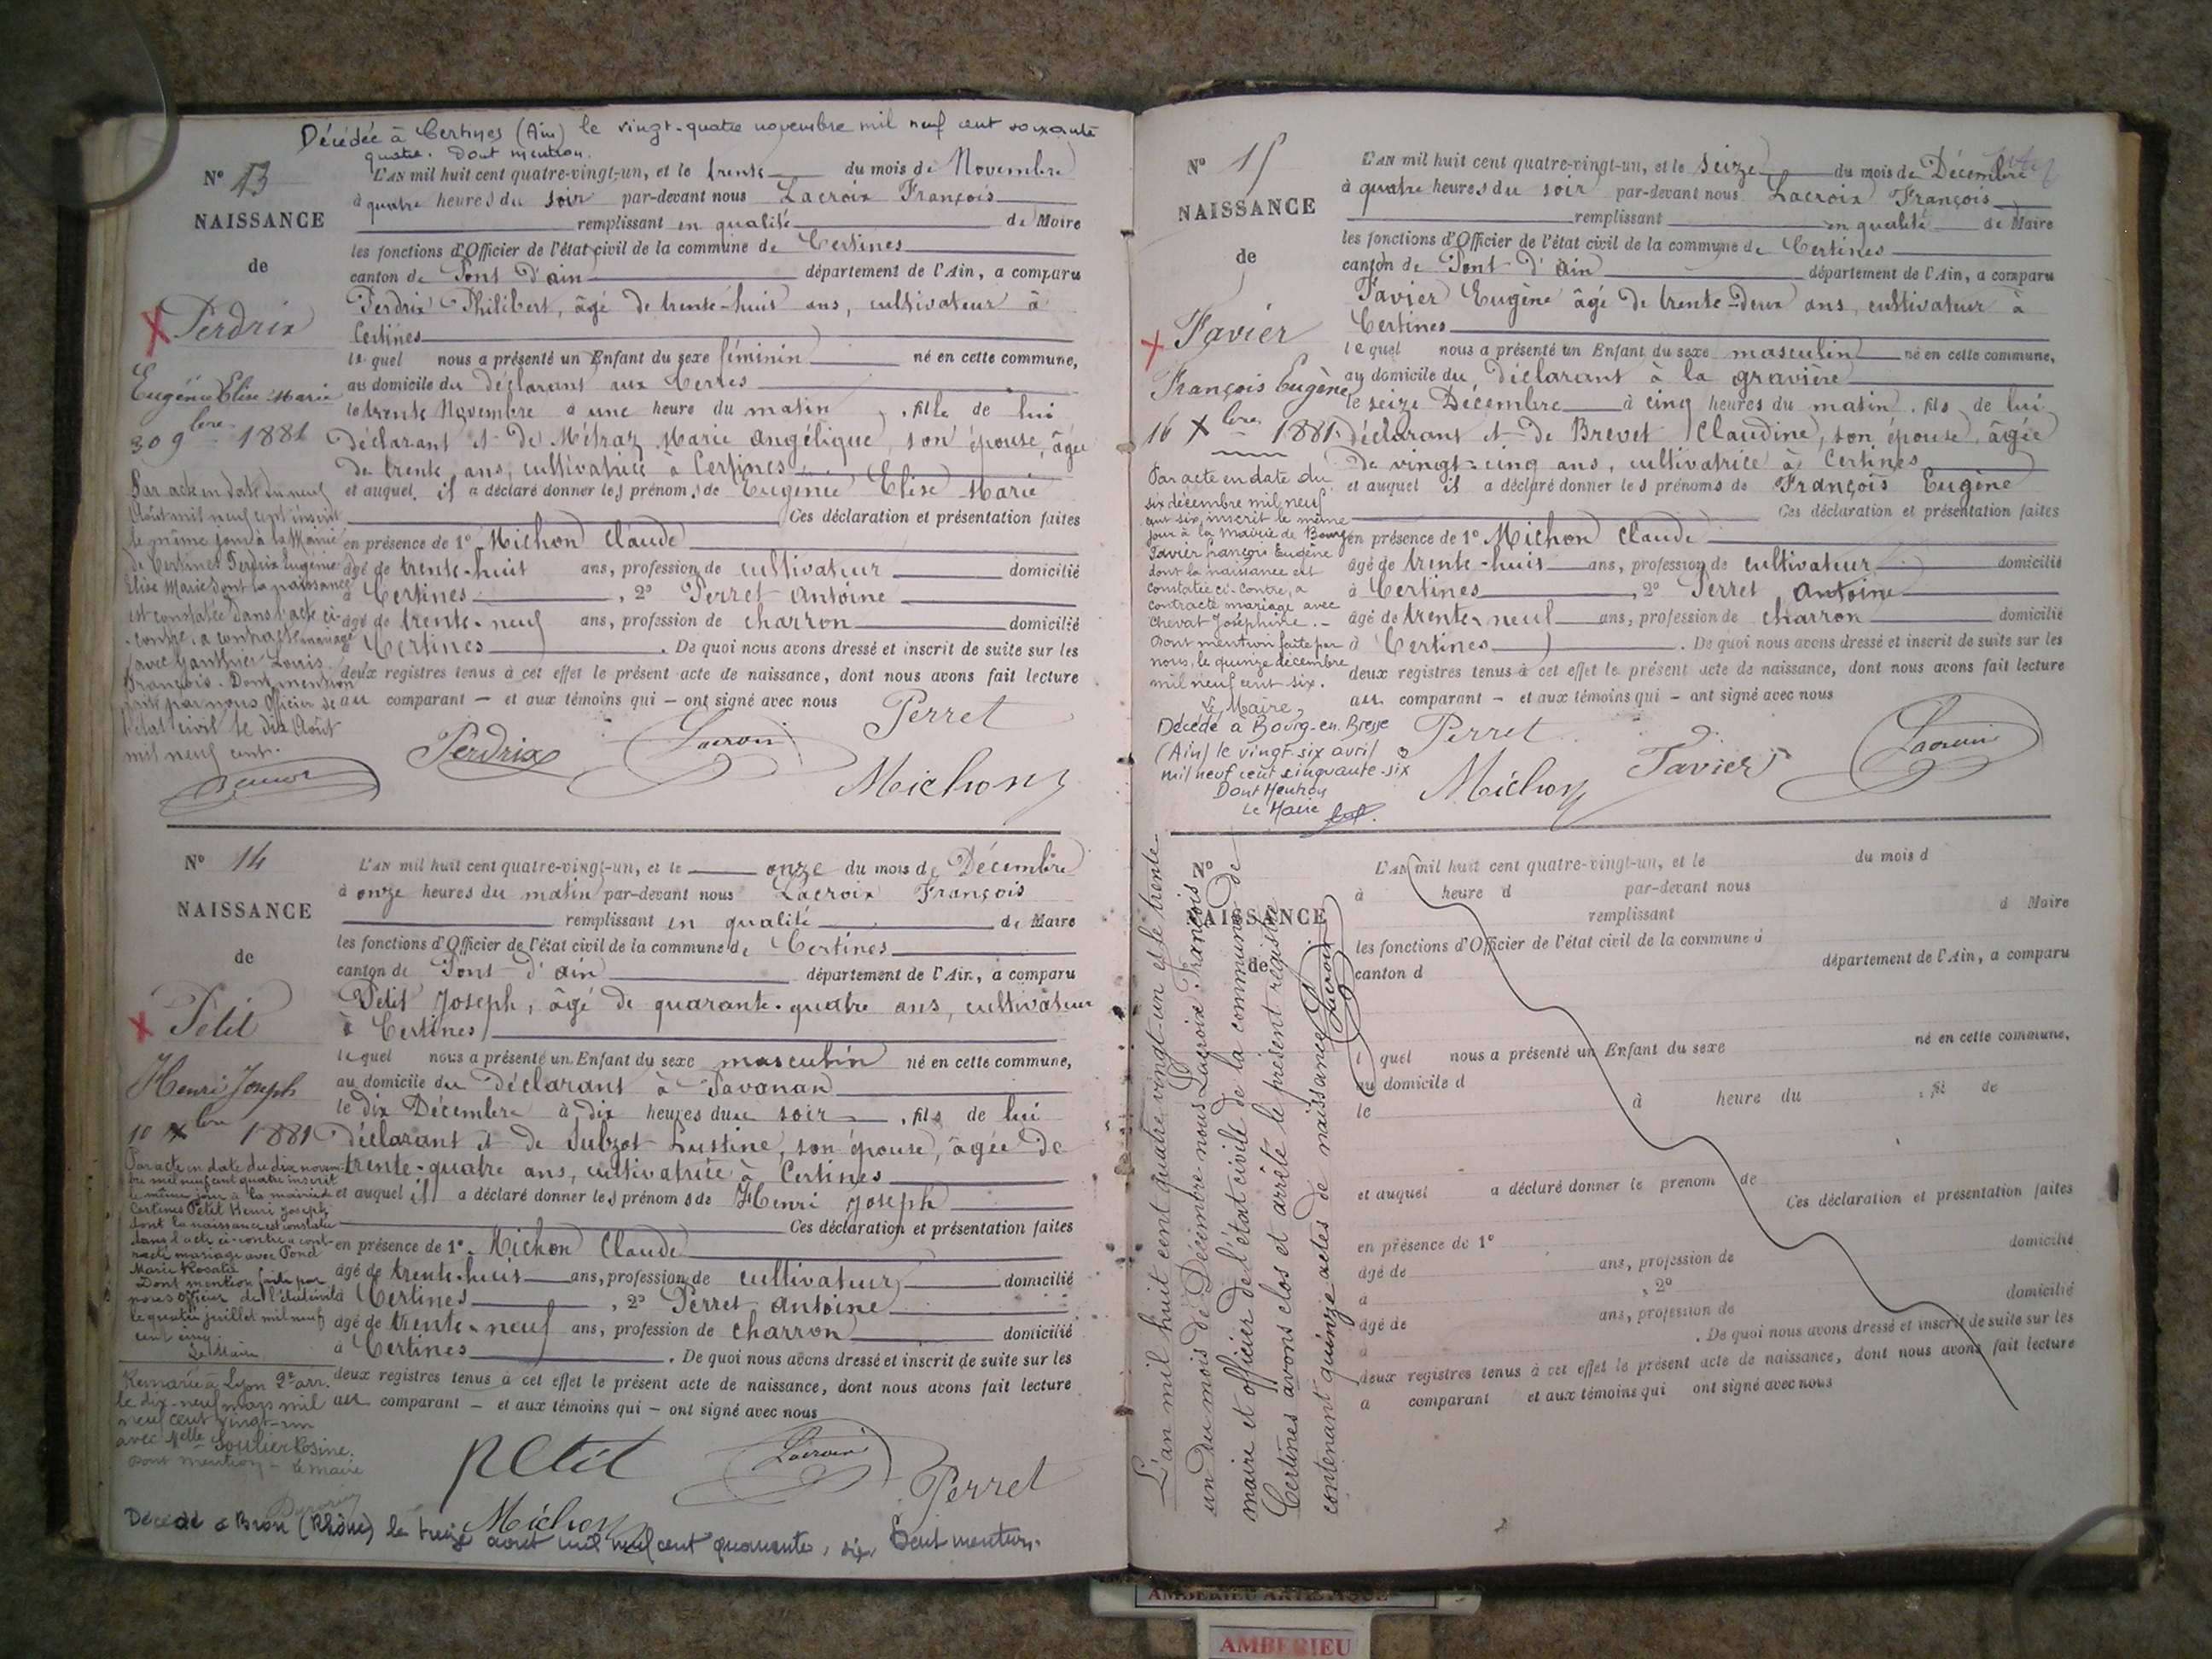 Décédée à Certines (Ain) le vingt-quatre novembre mil neuf cent soixante
quatre. Dont mention.
N° 13
NAISSANCE
de
Perdrix
Eugénie Elise Marie
30 9bre 1881
Par acte en date du neuf
Août mil neuf cent inscrit
le même jour à la Mairie
de Certines Perdrix Eugénie
Elise Marie dont la naissance
est constatée dans l'acte ci-
-contre, a contracté mariage
avec Gauthier Louis
François. Dont mention
faite par nous Officier de
l'état civil le dix Août
mil neuf cent.
L'AN mil huit cent quatre-vingt-un, et le trente du mois de Novembre
à quatre heures du soir par-devant nous Lacroix François
remplissant en qualité de Maire
les fonctions d'Officier de l'état civil de la commune de Certines
canton de Pont d'ain département de l'Ain, a comparu
Perdrix Philibert, âgé de trente-huit ans, cultivateur à
Certines
lequel nous a présenté un Enfant du sexe féminin né en cette commune,
au domicile du déclarant aux Terres
le trente Novembre à une heure du matin, fille de lui
déclarant et de Métraz Marie Angélique, son épouse, âgée
de trente ans, cultivatrice à Certines
et auquel il a déclaré donner les prénoms de Eugénie Elise Marie
Ces déclaration et présentation faites
en présence de 1° Michon Claude
âgé de trente-huit ans, profession de cultivateur domicilié
à Certines, 2° Perret Antoine
âgé de trente-neuf ans, profession de charron domicilié
à Certines. De quoi nous avons dressé et inscrit de suite sur les
deux registres tenus à cet effet le présent acte de naissance, dont nous avons fait lecture
au comparant — et aux témoins qui — ont signé avec nous
Perret
Perdrix Lacroix
Michon
N° 14
NAISSANCE
de
Petit
Henri Joseph
10 Xbre 1881
Par acte en date du dix novem-
bre mil neuf cent quatre inscrit
le même jour à la mairie de
Certines Petit Henri Joseph
dont la naissance est constatée
dans l'acte ci-contre a cont-
racté mariage avec Pond
Marie Rosalie
Dont mention faite par
nous Officier de l'état civil
le quatre juillet mil neuf
cent cinq.
Le Maire
Remarié à Lyon 2e arr.
le dix-neuf mars mil
neuf cent vingt-un
avec Melle Soulier Rosine.
Dont mention - le maire
L'AN mil huit cent quatre-vingt-un, et le onze du mois de Décembre
à onze heures du matin par-devant nous Lacroix François
remplissant en qualité de Maire
les fonctions d'Officier de l'état civil de la commune de Certines
canton de Pont d'ain département de l'Ain, a comparu
Petit Joseph, âgé de quarante-quatre ans, cultivateur
à Certines
lequel nous a présenté un Enfant du sexe masculin né en cette commune,
au domicile du Déclarant à Tavanan
le dix Décembre à dix heures du soir, fils de lui
déclarant et de Subzot Lustine, son épouse, âgée de
trente-quatre ans, cultivatrice à Certines
et auquel il a déclaré donner les prénoms de Henri Joseph
Ces déclaration et présentation faites
en présence de 1° Michon Claude
âgé de trente-huit ans, profession de cultivateur domicilié
à Certines, 2° Perret Antoine
âgé de trente-neuf ans, profession de charron domicilié
à Certines. De quoi nous avons dressé et inscrit de suite sur les
deux registres tenus à cet effet le présent acte de naissance, dont nous avons fait lecture
au comparant — et aux témoins qui — ont signé avec nous
Petit Lacroix
Perret
Michon
Décédé à Bron (Rhône) le treize août mil neuf cent quarante, six. Dont mention.
N° 15
NAISSANCE
de
Favier
François Eugène
16 Xbre 1881
Par acte en date du
six décembre mil neuf
cent six, inscrit le même
jour à la Mairie de Bourg
Favier François Eugène
dont la naissance est
constatée ci-contre, a
contracté mariage avec
Chevat Joséphine.-
Dont mention faite par
nous, le quinze décembre
mil neuf cent six.
Le Maire,
Décédé à Bourg-en-Bresse
(Ain) le vingt-six avril
mil neuf cent cinquante-six
Dont Mention
Le Maire
L'AN mil huit cent quatre-vingt-un, et le seize du mois de Décembre
à quatre heures du soir par-devant nous Lacroix François
remplissant en qualité de Maire
les fonctions d'Officier de l'état civil de la commune de Certines
canton de Pont d'ain département de l'Ain, a comparu
Favier Eugène âgé de trente-deux ans, cultivateur à
Certines
lequel nous a présenté un Enfant du sexe masculin né en cette commune,
au domicile du déclarant à la gravière
le seize Décembre à cinq heures du matin, fils de lui
déclarant et de Brevet Claudine, son épouse, âgée
de vingt-cinq ans, cultivatrice à Certines
et auquel il a déclaré donner les prénoms de François Eugène
Ces déclaration et présentation faites
en présence de 1° Michon Claude
âgé de trente-huit ans, profession de cultivateur domicilié
à Certines, 2° Perret Antoine
âgé de trente-neuf ans, profession de charron domicilié
à Certines. De quoi nous avons dressé et inscrit de suite sur les
deux registres tenus à cet effet le présent acte de naissance, dont nous avons fait lecture
au comparant — et aux témoins qui — ont signé avec nous
Perret
Michon Favier Lacroix
N°
NAISSANCE
de
L'an mil huit cent quatre vingt-un et le trente-
un du mois de Décembre nous Lacroix François
maire et officier de l'état civile de la commune de
Certines avons clos et arrêté le présent registre
contenant quinze actes de naissance Lacroix
L'AN mil huit cent quatre-vingt-un, et le du mois d
à heure d par-devant nous
remplissant d Maire
les fonctions d'Officier de l'état civil de la commune d
canton d département de l'Ain, a comparu
l quel nous a présenté un Enfant du sexe né en cette commune,
au domicile d
le à heure du , fil de
et auquel a déclaré donner le prénom de
Ces déclaration et présentation faites
en présence de 1°
âgé de ans, profession de domicilié
à , 2°
âgé de ans, profession de domicilié
à . De quoi nous avons dressé et inscrit de suite sur les
deux registres tenus à cet effet le présent acte de naissance, dont nous avons fait lecture
a comparant et aux témoins qui ont signé avec nous
AMBERIEU ARTISTIQUE
AMBERIEU